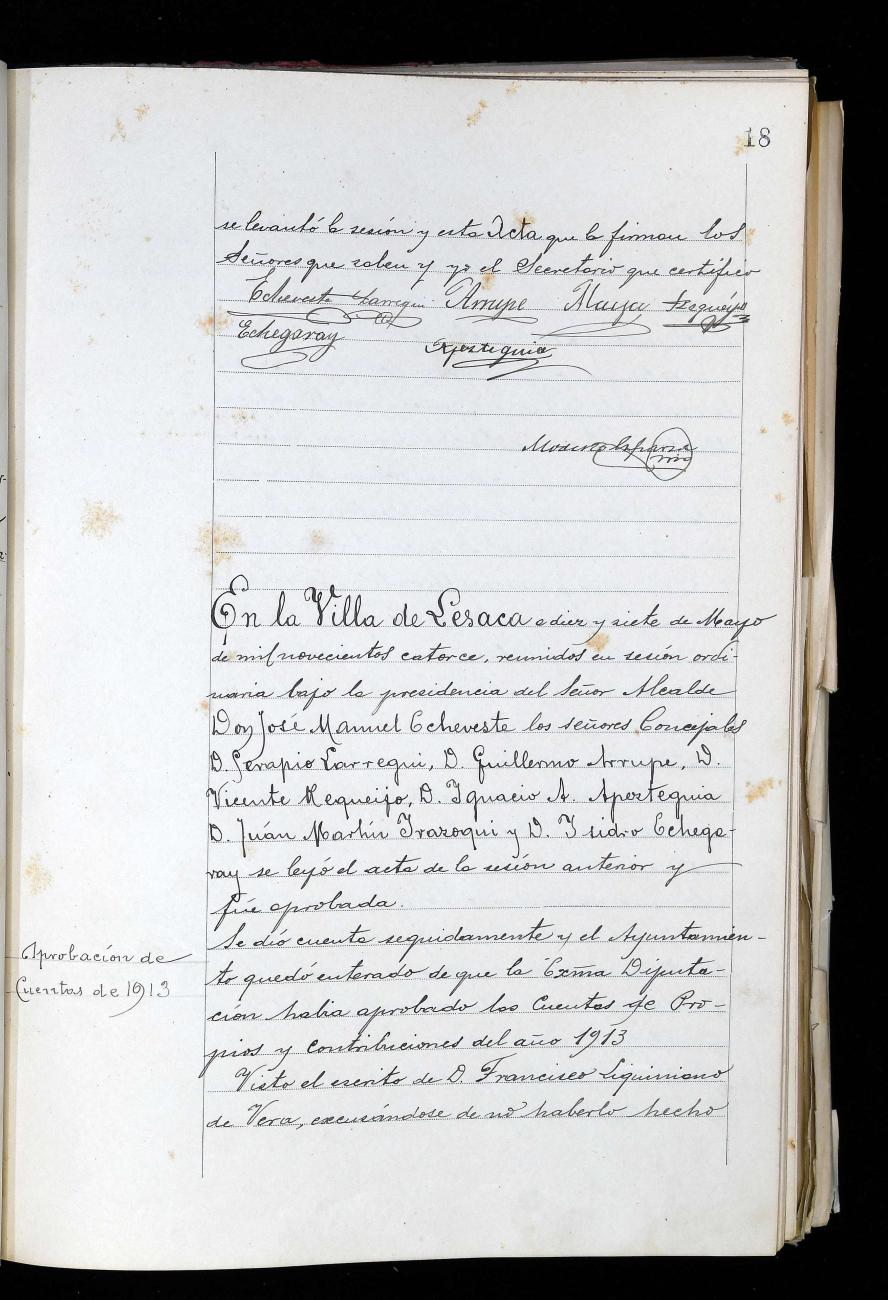 18
se levantó la sesión y esta Acta que la firman los
Señores que saben y yo el Secretario que certifico
Echeveste Larregui Arrupe Maya Requeijo
Echegaray Apezteguia
Modesto Esparza
En la Villa de Lesaca a diez y siete de Mayo
de mil novecientos catorce, reunidos en sesión ordi-
naria bajo la presidencia del Señor Alcalde
Don José Manuel Echeveste los señores Concejales
D. Serapio Larregui, D. Guillermo Arrupe, D.
Vicente Requeijo, D. Ignacio A. Apezteguia
D. Juán Martín Irazoqui y D. Isidro Echega-
ray se leyó el acta de la sesión anterior y
fúe aprobada.
Aprobación de
Cuentas de 1913
Se dió cuenta seguidamente y el Ayuntamien-
to quedó enterado de que la Exma Diputa-
ción habia aprobado las Cuentas de Pro-
pios y contribuciones del año 1913
Visto el escrito de D. Francisco Liquiniano
de Vera, excusándose de no haberlo hecho